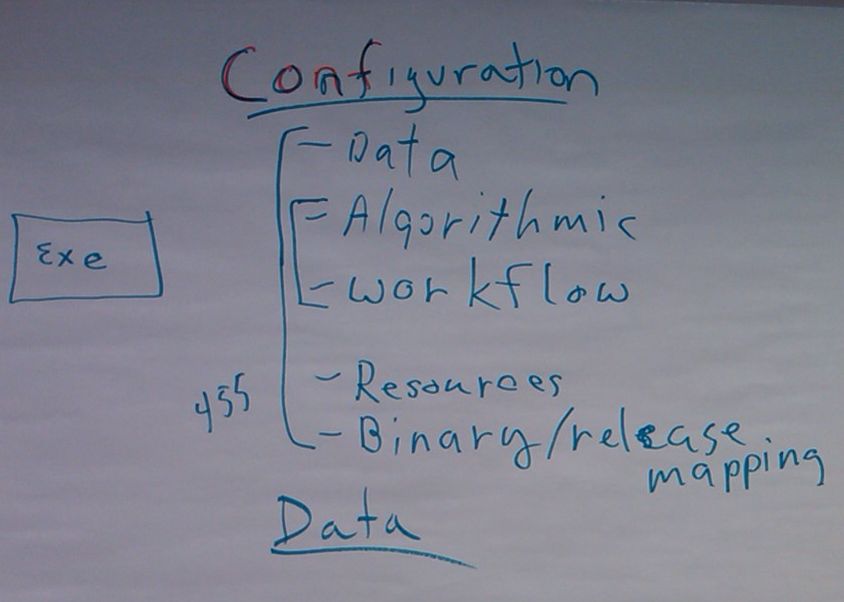 Configuration
- Data
- Algorithmic
- Workflow
Exe
- Resources
455
- Binary/release
mapping
Data